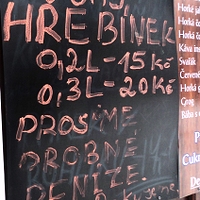 HŘEBÍNEK
0,2L-15Kč
0,3L-20Kč
PROSÍME
DROBNÉ
PENÍZE.
Děkujeme.
Horká
Horká
Horká č
Káva ins
Svařák
Červené
Horká g
Grog
Bába s
Cuk